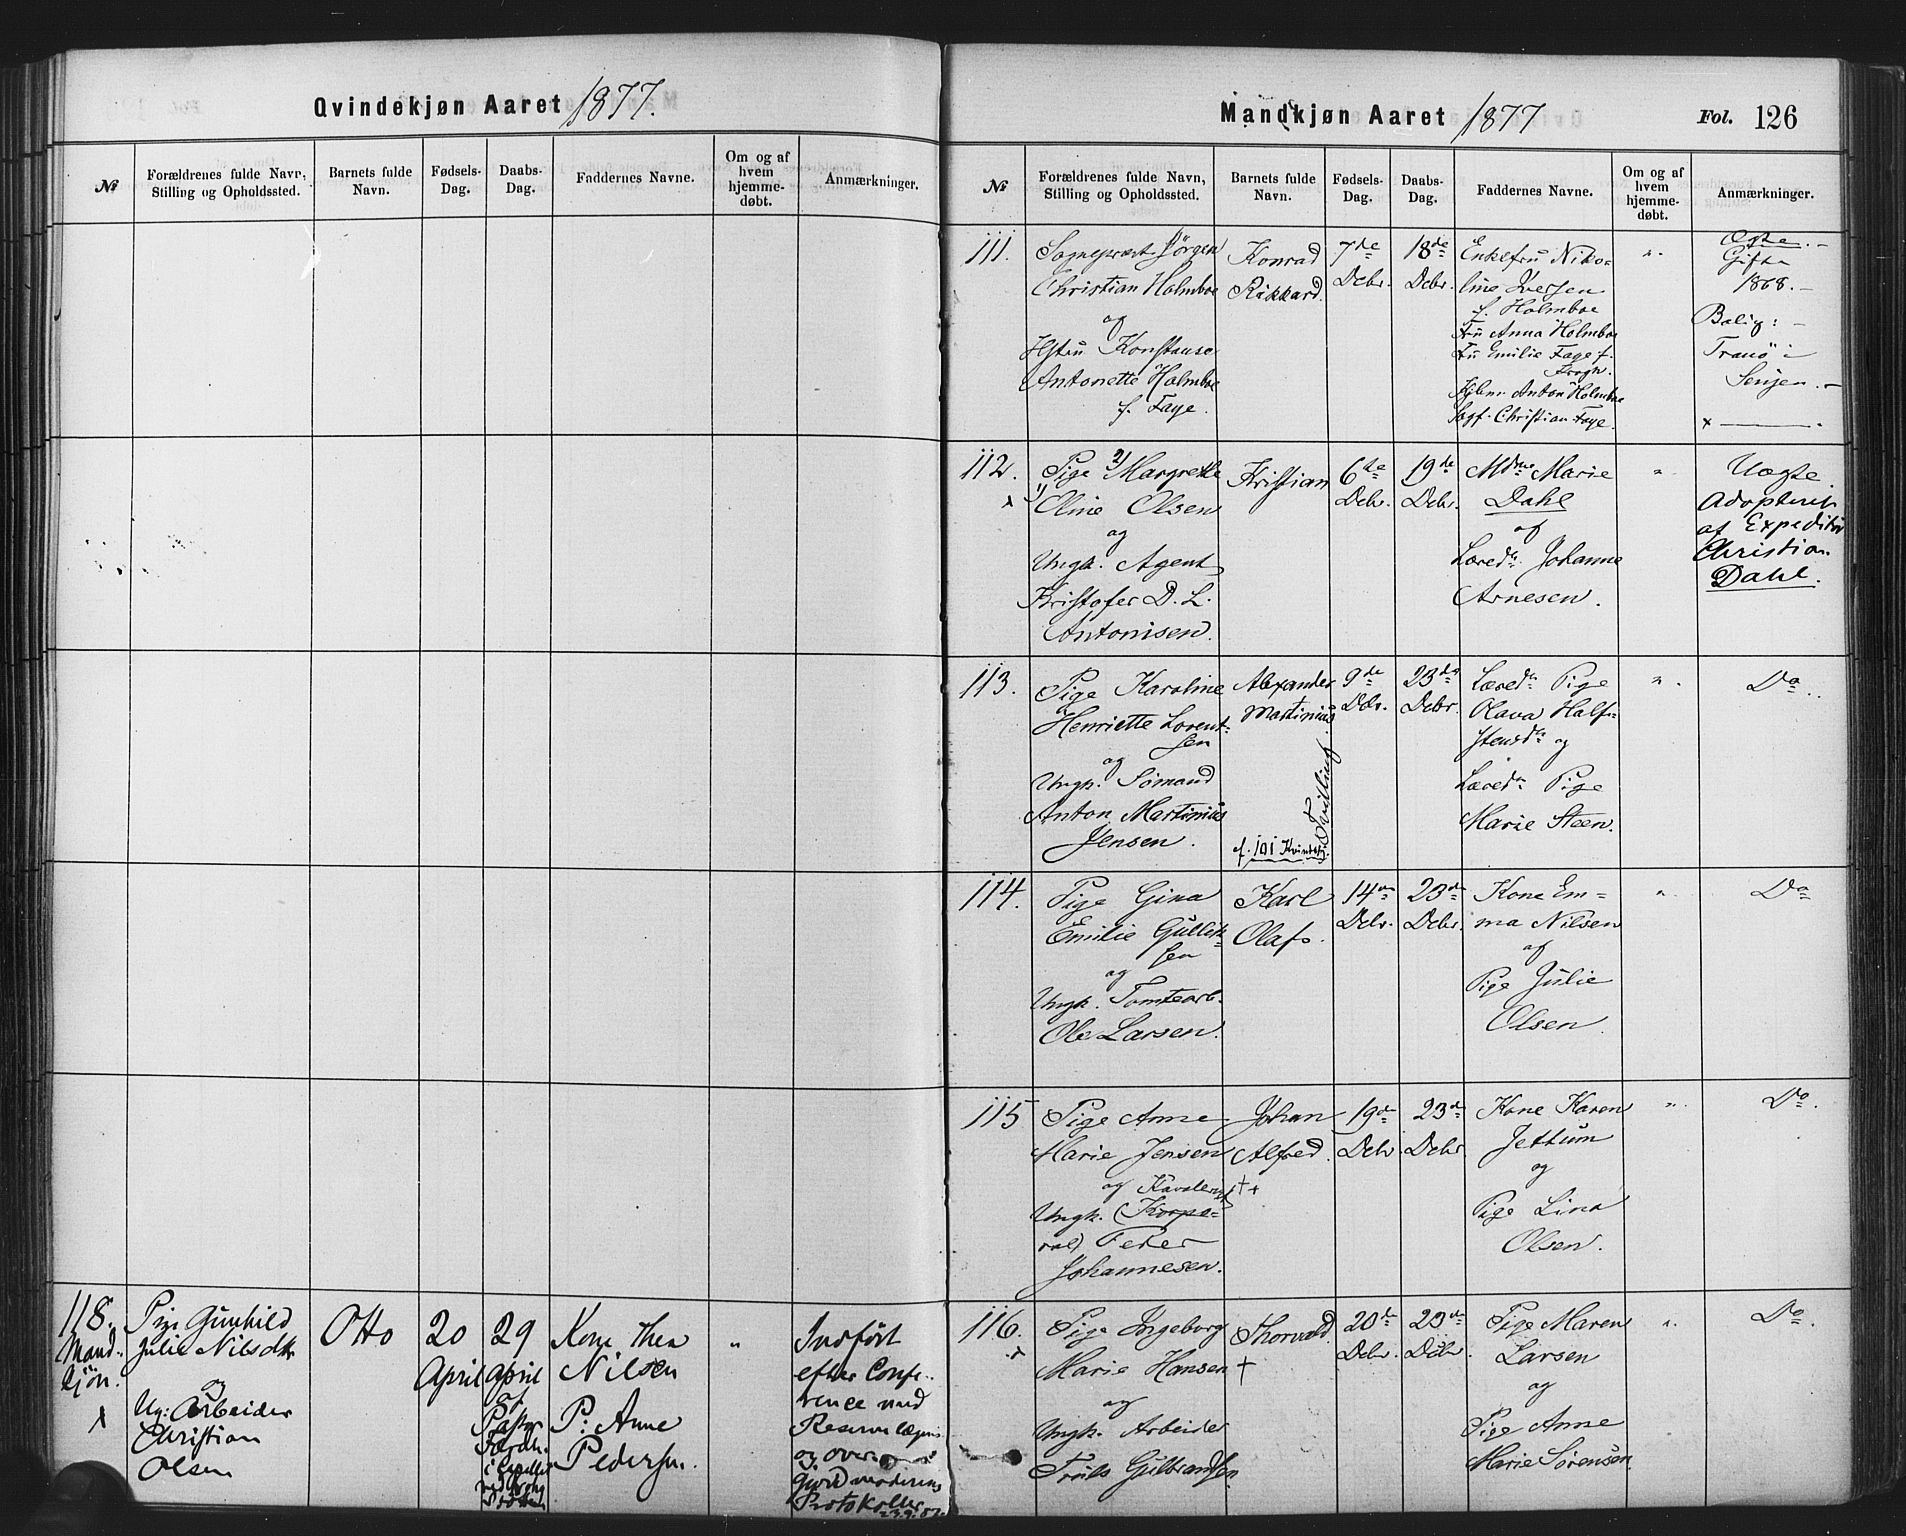 Qvindekjøn Aaret 1877.
№
Forældrenes fulde Navn,
Stilling og Opholdssted.
Barnets fulde
Navn.
Fødsels-
Dag.
Daabs-
Dag.
Faddernes Navne.
Om og af
hvem
hjemme-
døbt.
Anmærkninger.
118.
Mand-
kjön.
x
Pige Gunhild
Julie Nilsdtr
og
Ug: Arbeider
Christian
Olsen
Otto
20
April
29
April
af
Pastor
Kone Thea
Nilsen
P: Anne
Pedersen.
"
Indført
efter Confe-
rence med
Protokoller
Mandkjøn Aaret 1877
Fol. 126
№
Forældrenes fulde Navn,
Stilling og Opholdssted.
Barnets fulde
Navn.
Fødsels-
Dag.
Daabs-
Dag.
Faddernes Navne.
Om og af
hvem
hjemme-
døbt.
Anmærkninger.
111.
Sognepræst Jörgen
Christian Holmboe
og
Hstru Konstanse
Antonette Holmboe
f. Faye.
Konrad
Rikkard.
7de
Debr.
18de
Debr.
Enkefru Niko-
line Iversen
f. Holmboe
Fru Anna Holmboe
Fru Emilie Faye f.
Krogh.
Anton Holmboe
Sagf. Christian Faye.
"
Ægte.-
Gifte
1868.-
Bolig:-
Tranö i
Senjen.-
x
112.
x
Pige 2) Margrethe
1) Oline Olsen
og
Ungk. Agent
Kristofer D. L.
Antonisen.
Kristian
6te
Debr.
19de
Debr.
Mdme Marie
Dahl
og
Læred. Johanne
Arnesen.
"
Uægte
Adopteret
af Expeditør
Christian
Dahl.
113.
Pige Karoline
Henriette Lorent-
sen
og
Ungk. Sömand
Anton Martinius
Jensen.
Alexander
Martinius
Tvilling.
cf. 101 Kvindekj.
9de
Debr.
23de
Debr.
Læred. Pige
Olava Half-
stensdtr og
Læred. Pige
Marie Steen.
"
Do.
114.
Pige Gina
Emilie Gullik-
sen
og
Ungk. Tomtearb.
Ole Larsen.
Karl
Olaf.
14de
Debr.
23de
Debr.
Kone Em-
ma Nilsen
og
Pige Julie
Olsen.
"
Do
115
Pige Anne
Marie Jensen
og Kavalerist
Ungk. (Korpo-
ral) Peder
Johannesen.
Johan
Alfred.
++
19de
Debr.
23de
Debr.
Kone Karen
Jettum
og
Pige Lina
Olsen.
"
Do.
116.
x
Pige Ingeborg
Marie Hansen
og
Ungk. Arbeider
Truls Gulbrandsen.
Thorvald.
+
20de
Debr.
23de
Debr.
Pige Maren
Larsen
og
Pige Anne
Marie Sörensen.
"
Do.